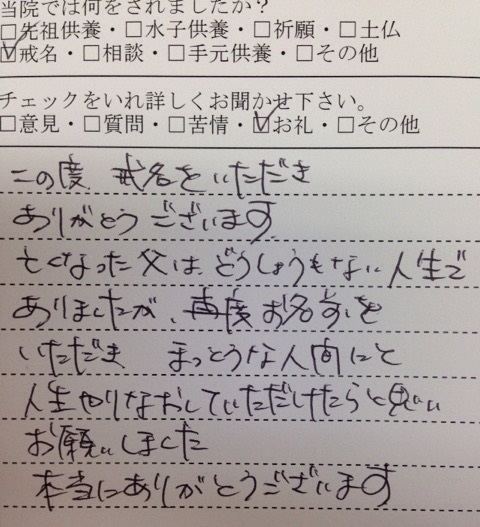 当院では何をされましたか？
□先祖供養・□水子供養・□祈願・□土仏
☑戒名・□相談・□手元供養・□その他
チェックをいれ詳しくお聞かせ下さい。
□意見・□質問・□苦情・☑お礼・□その他
この度 戒名をいただき
ありがとうございます
亡くなった父は、どうしょうもない人生で
ありましたが、再度お名前を
いただき まっとうな人間にと
人生やりなおしていただけたらと思い
お願いしました
本当にありがとうございます